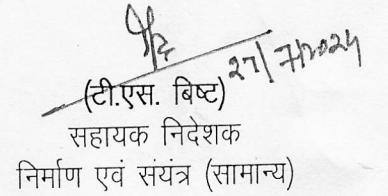 27/7/2024
(टी.एस. बिष्ट)
सहायक निदेशक
निर्माण एवं संयंत्र (सामान्य)